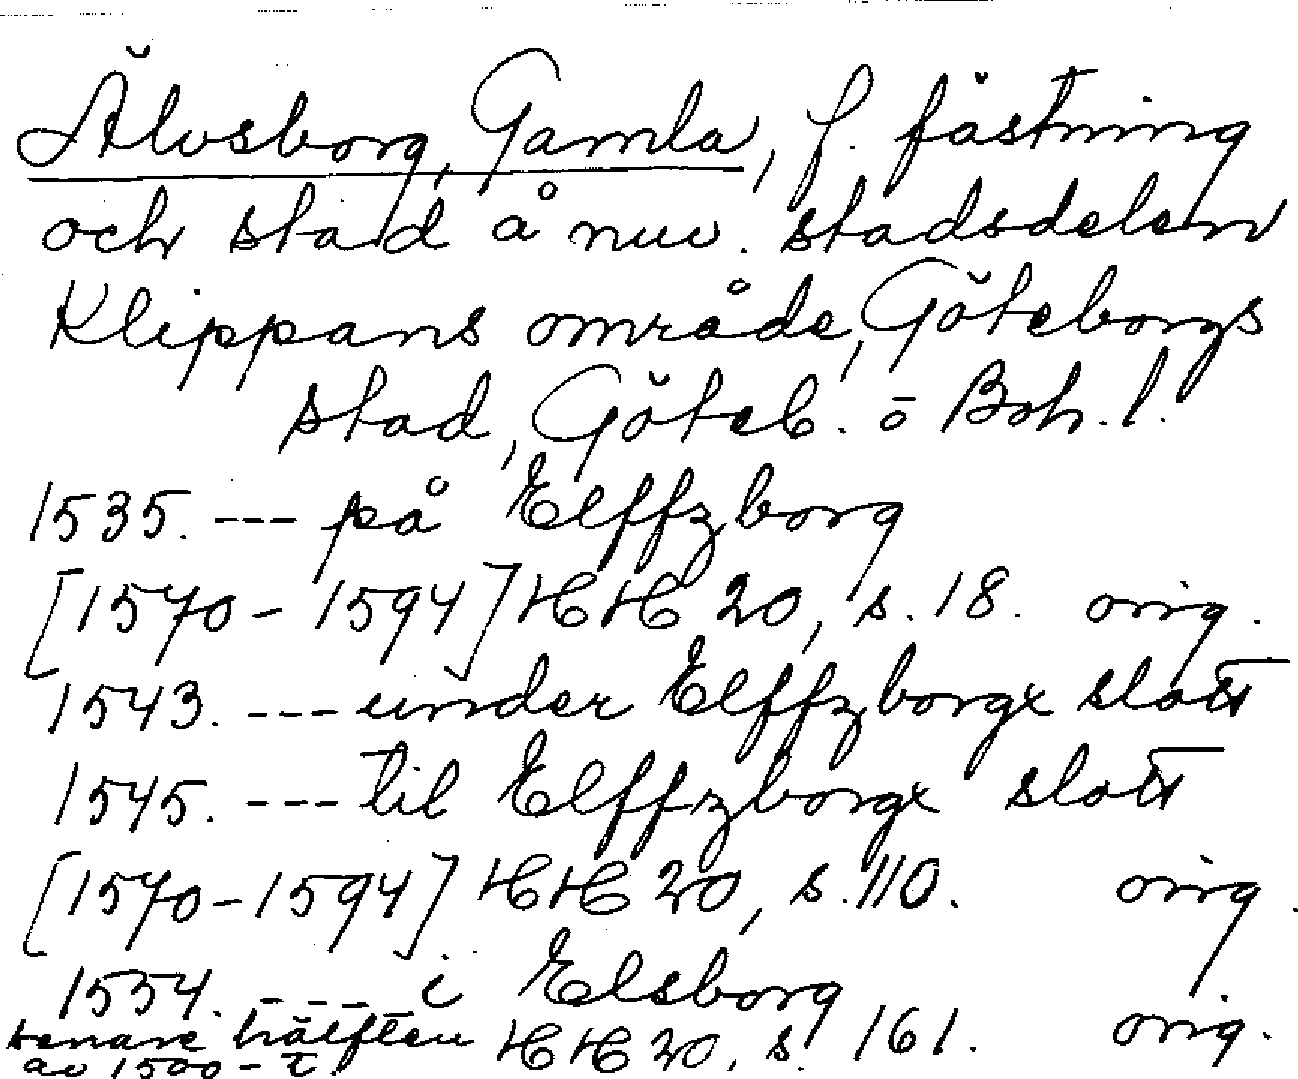 Älvsborg, Gamla, f. fästning
och stad å nuv. stadsdelen
Klippans område, Göteborgs
stad, Göteb. o Boh. l.
1535. --- på Elffzborg
[1570-1594] HH 20, s. 18. orig.
1543. --- under Elffzborgx slott
1545. --- til Elffzborgx slott
[1570-1594] HH 20, s. 110. orig.
1554. --- i Elsborg
senare hälften HH 20, s. 161. orig.
av 1500-t.